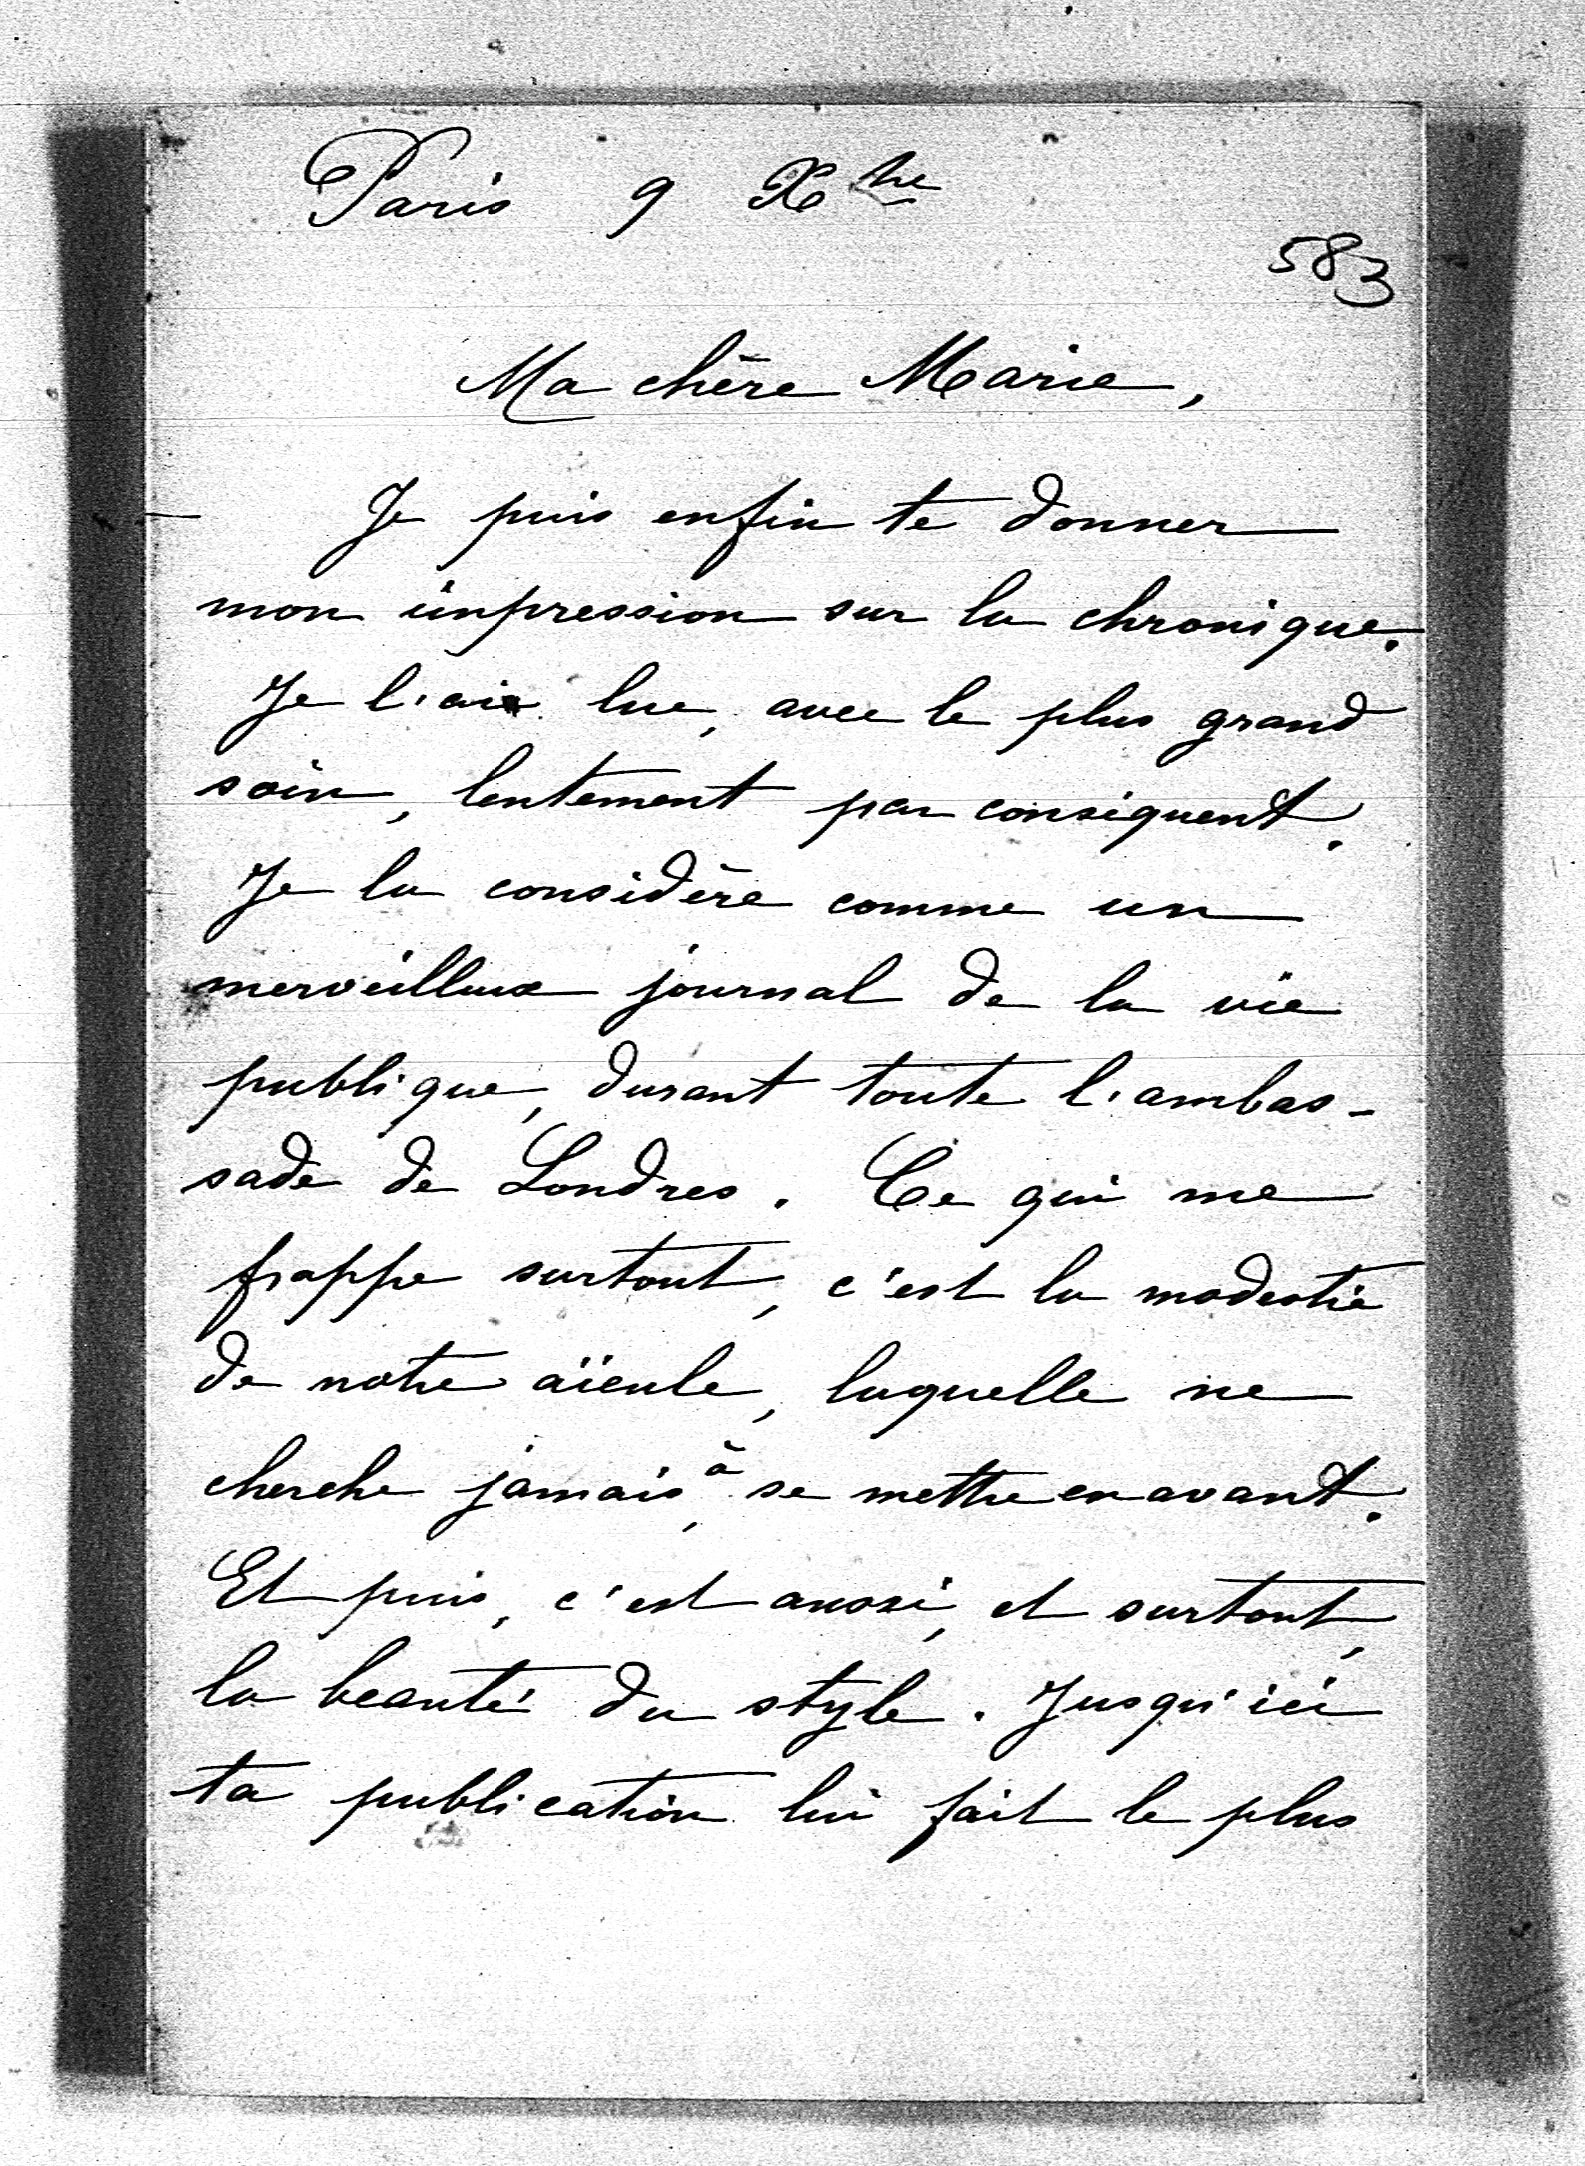 Paris 9 Xbre
583
Ma chère Marie,
Je puis enfin te donner
mon impression sur la chronique.
Je l'ai lue, avec le plus grand
soin, lentement par conséquent.
Je la considère comme un
merveilleux journal de la vie
publique, durant toute l'ambas-
sade de Londres. Ce qui me
frappe surtout, c'est la modestie
de notre aïeule, laquelle ne
cherche jamais, à se mettre en avant.
Et puis, c'est aussi, et surtout,
la beauté du style. Jusqu'ici
ta publication lui fait le plus